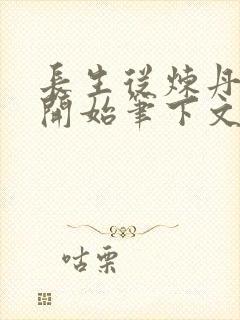 長生從煉丹
開始筆下文
咕栗